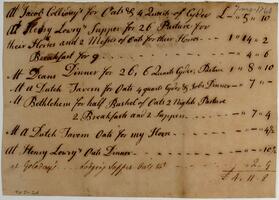 At Jacob Colloday's for Oats & 4 Quarts of Cyder £ - " 5 " 10
At Henry Lowry's Supper for 26 Pasture for
their Horses and 2 Messes of Oats for their Horses 1 " 14 " 2
Breakfast for 9 - " 4 " 6
At Deans Dinner for 26, 6 Quarts Cyder, Pasture 1 " 8 " 10
At a Dutch Tavern for Oats 4 quarts Cyder & Dinner - " 7
At Bethlehem for half Bushel of Oats 2 Nights Pasture
2 Breakfasts and 2 Suppers - " 7 " 4
At a Dutch Tavern Oats for my Horse
At Henry Lowry's Oats Dinner
at Lodging Supper Oats
£ 4 " 11 " 8